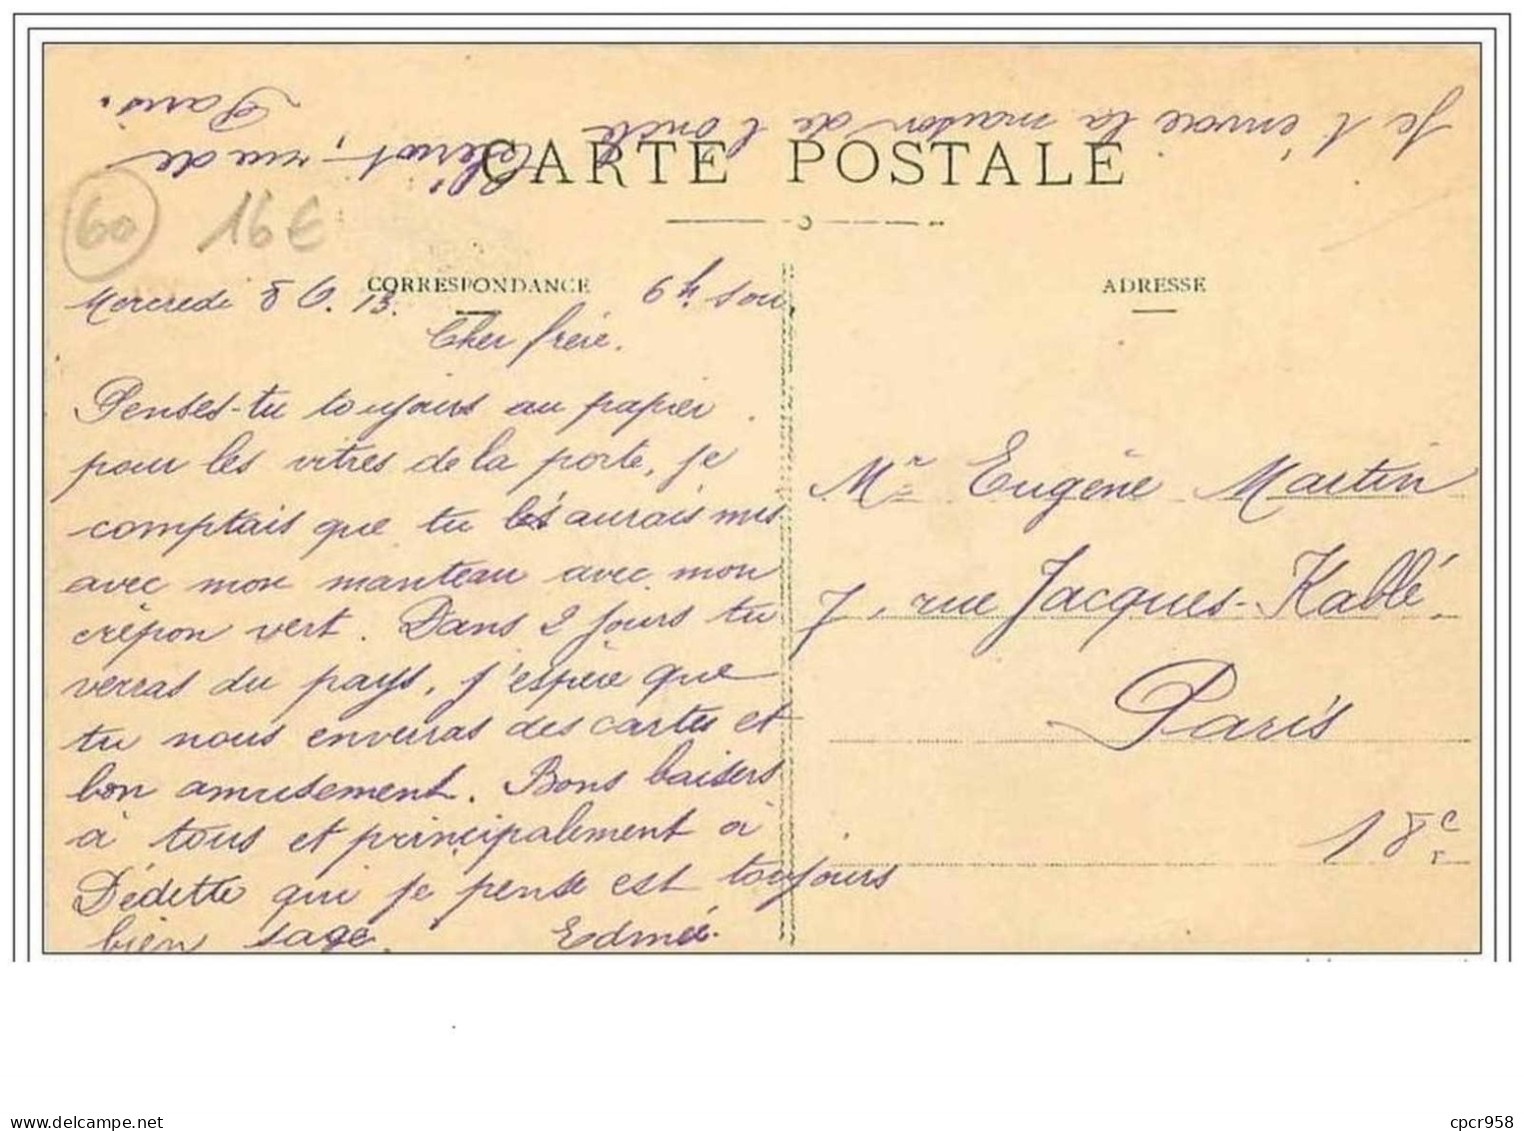 Je t'envoie la maison de l'oncle
rue de
Paris.
CARTE POSTALE
60 16€
CORRESPONDANCE
ADRESSE
Mercredi 8 6. 13. 6 h soir
Cher frère.
Penses-tu toujours au papier
pour les vitres de la porte, je
comptais que tu les aurais mis
avec mon manteau avec mon
crépon vert. Dans 2 jours tu
verras du pays, j'espère que
tu nous enverras des cartes et
bon amusement. Bons baisers
à tous et principalement à
Dédette qui je pense est toujours
bien sage. Edmée.
Mr Eugène Martin
7, rue Jacques-Kablé
Paris
18e
cpcr958